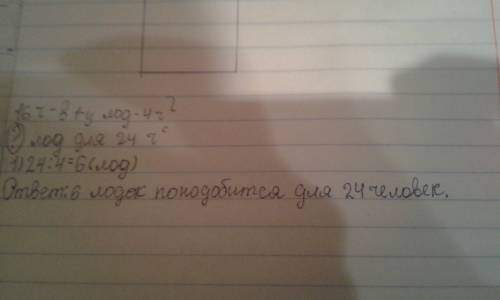 лод - 4 ч
? лод для 24 ч
1) 24:4=6(лод)
Ответ: 6 лодок понадобится для 24 человек.